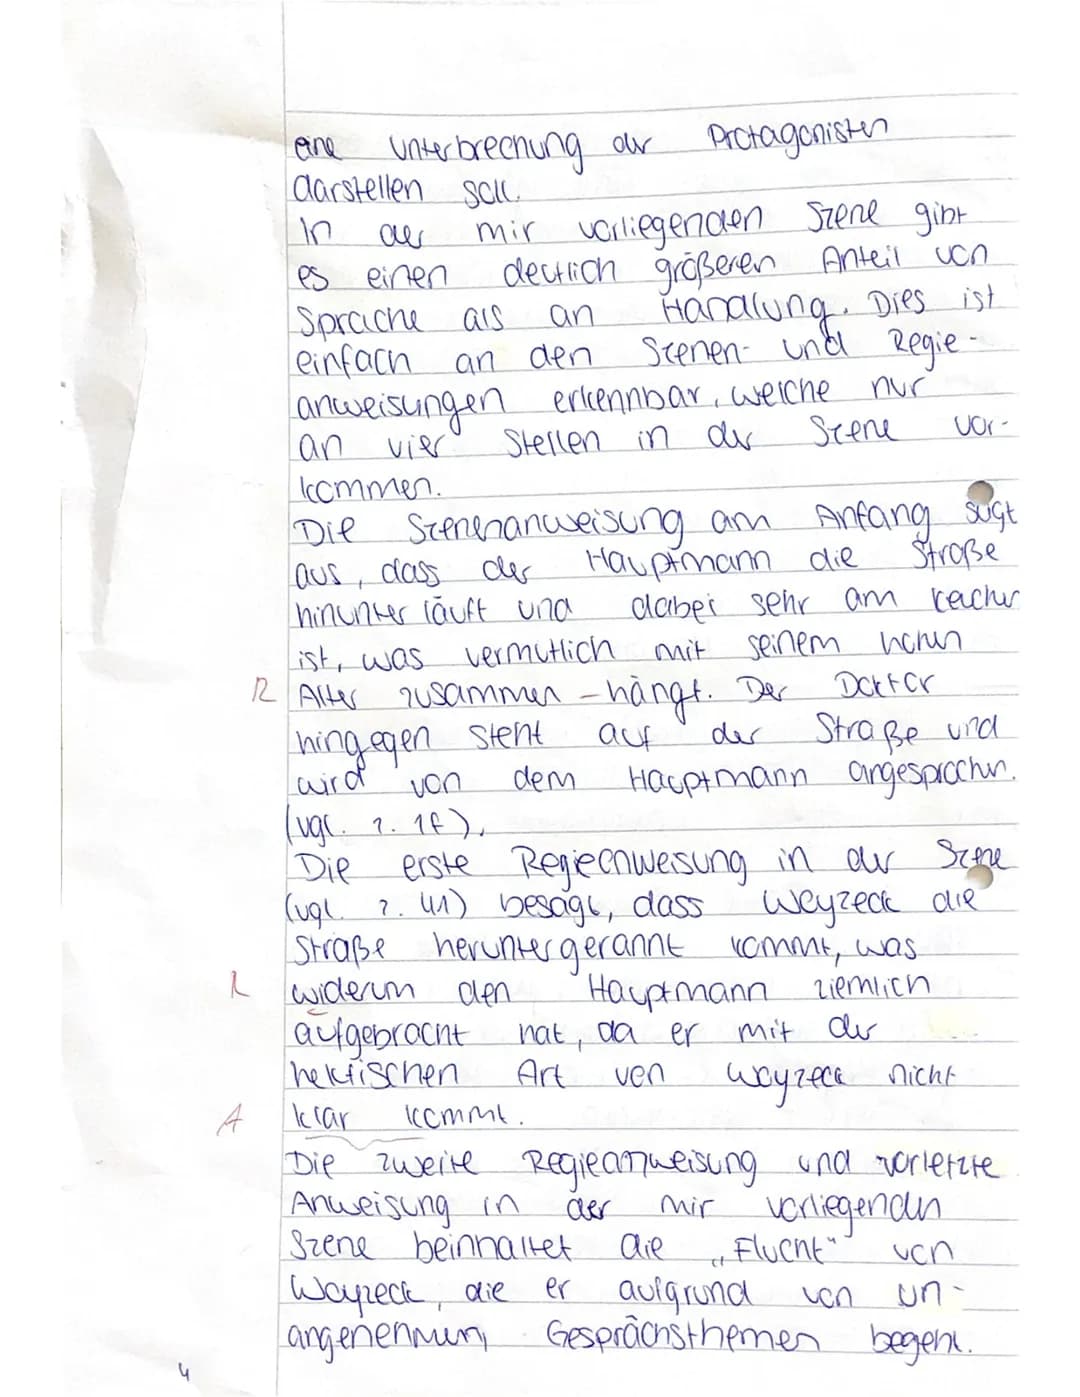 eine Unterbrechung der Protagonisten
darstellen soll.
In der mir vorliegenden Szene gibt
es einen deutlich größeren Anteil von
Sprache als an Handlung. Dies ist
einfach an den Szenen- und Regie-
anweisungen erkennbar, welche nur
an vier Stellen in der Szene vor-
kommen.
Die Szenenanweisung am Anfang sagt
aus, dass der Hauptmann die Straße
hinunter läuft und dabei sehr am keuchen
ist, was vermutlich mit seinem hohen
R Alter zusammen-hängt. Der Doktor
hingegen steht auf der Straße und
wird von dem Hauptmann angesprochen.
(vgl. Z. 1f).
Die erste Regieanweisung in der Szene
(vgl. Z. 41) besagt, dass Woyzeck die
Straße heruntergerannt kommt, was
R widerum den Hauptmann ziemlich
aufgebracht hat, da er mit der
hektischen Art von Woyzeck nicht
A klar kommt.
Die zweite Regieanweisung und vorletzte
Anweisung in der mir vorliegenden
Szene beinhaltet die „Flucht" von
Woyzeck, die er aufgrund von un-
angenehmen Gesprächsthemen begeht.
4